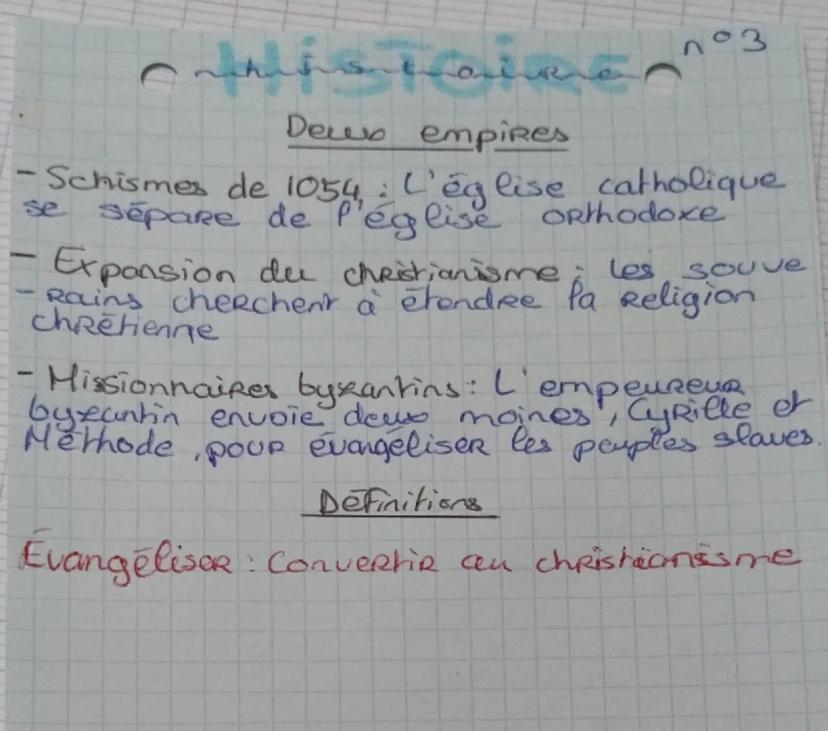 Histoire n°3
Deux empires
- Schismes de 1054 : L'église catholique
se sépare de l'église orthodoxe
- Expansion du christianisme : les souve
- rains cherchent à étendre la religion
chrétienne
- Missionnaires byzantins : L'empeureur
byzantin envoie deux moines, Cyrille et
Méthode, pour évangéliser les peuples slaves.
Définitions
Évangéliser : Convertir au christianisme